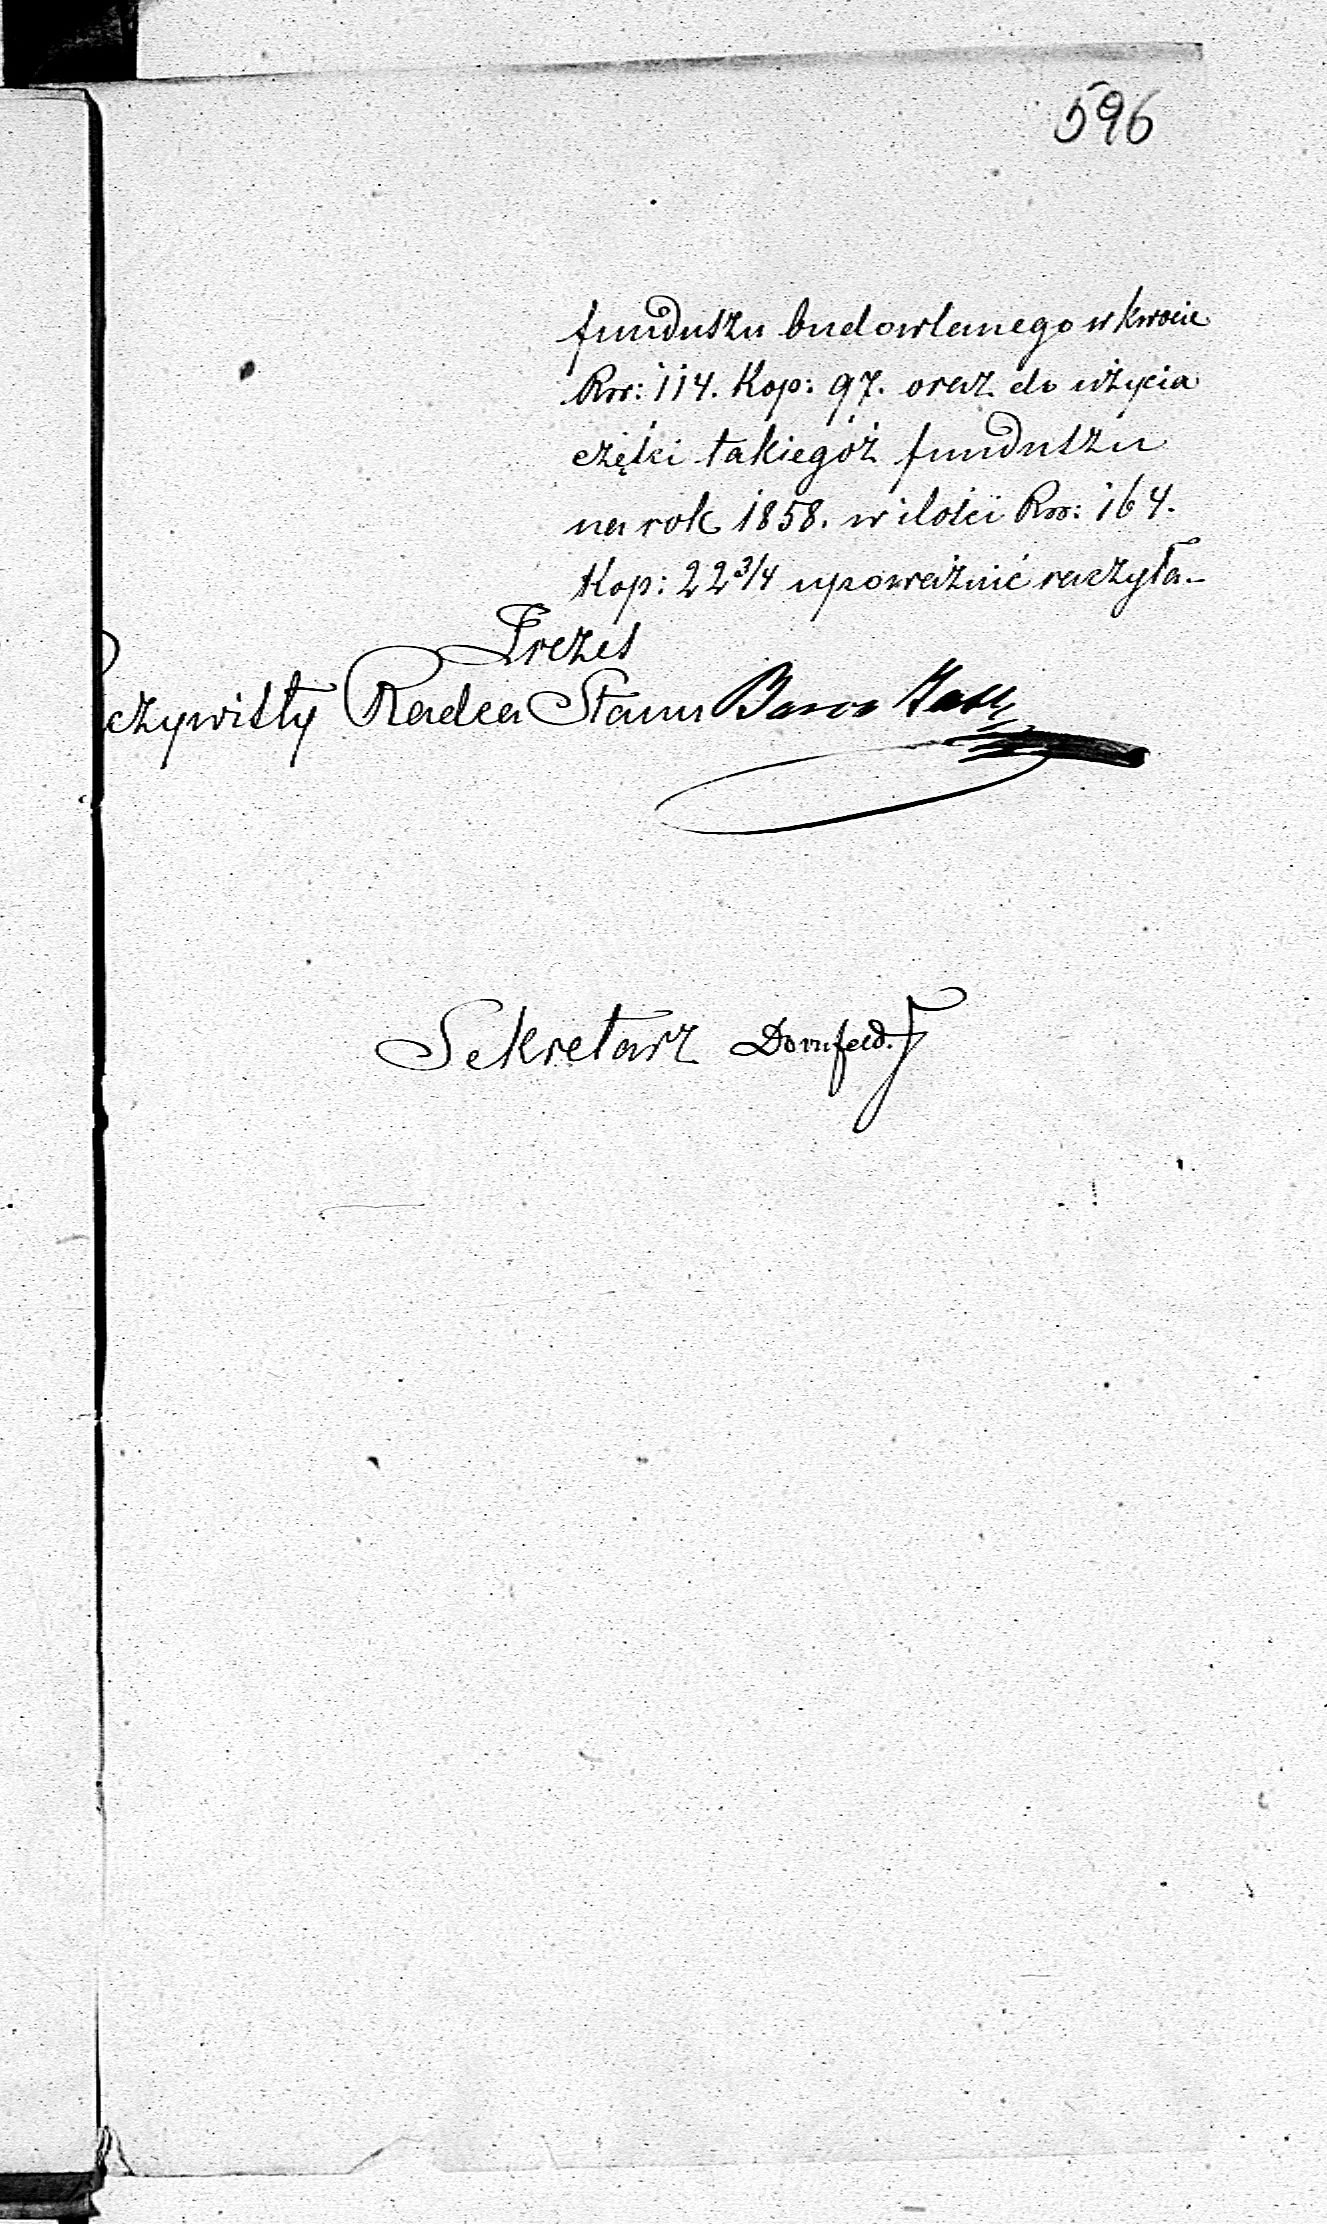 596
funduszu budowlanego w kwocie
Rsr: 114. Kop: 97. oraz do użycia
części takiegóż funduszu
na rok 1858. w ilości Rsr: 164.
Kop: 22 3/4 upoważnić raczyła.–
Prezes
czywisty Radca Stanu Baron
Sekretarz Dornfeld.